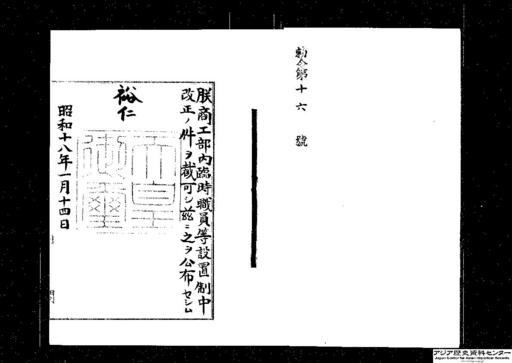 勅令第十六號
朕商工部內臨時職員等設置制中
改正ノ件ヲ裁可シ茲ニ之ヲ公布セシム
裕仁
天皇御璽
昭和十八年一月十四日
アジア歴史資料センター
Japan Center for Asian Historical Records